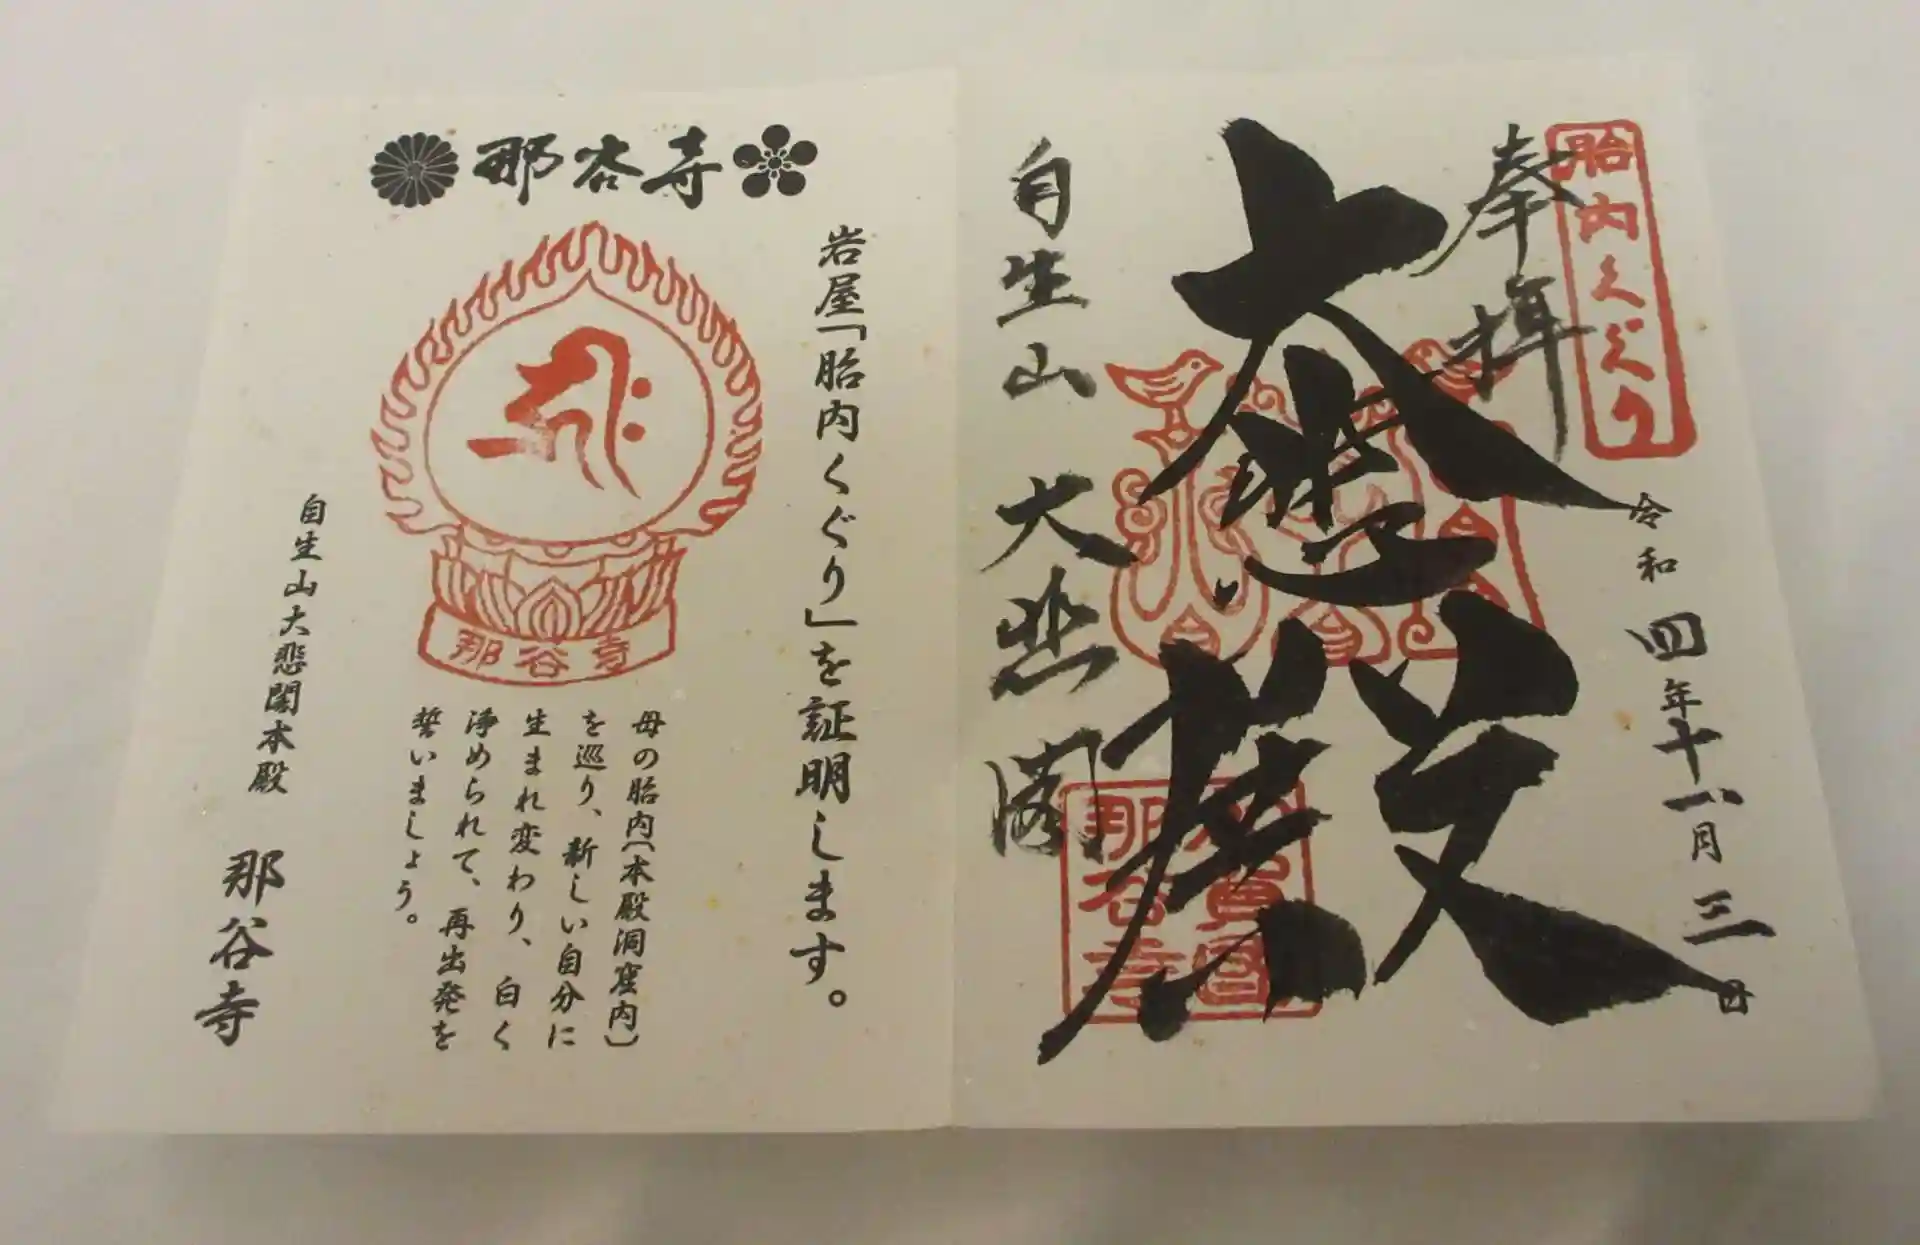 胎内くぐり
奉拝
令和四年十一月三日
大悲殿
自生山 大悲閣
那谷寺
那谷寺
岩屋「胎内くぐり」を証明します。
那谷寺
母の胎内(本殿洞窟内)
を巡り、新しい自分に
生まれ変わり、白く
浄められて、再出発を
誓いましょう。
自生山大悲閣本殿
那谷寺